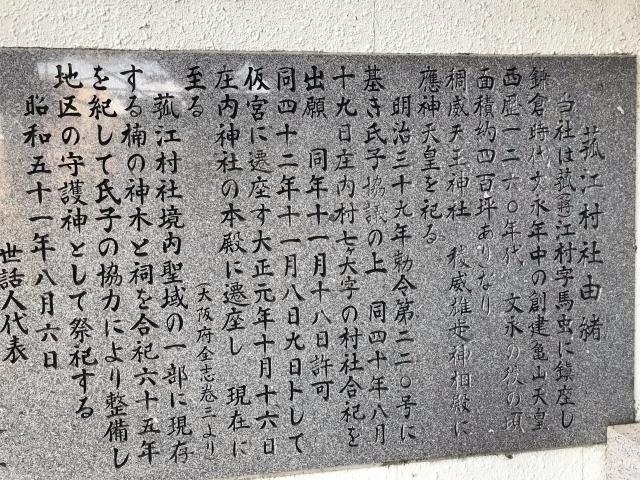 菰江村社由緒
当社は菰江村字馬虫に鎮座し
鎌倉時代文永年中の創建亀山天皇
西歴一二六〇年代 文永の役の頃
面積約四百坪ありなり
稠威天王神社 稜威雄走神相殿に
應神天皇を祀る
明治三十九年勅令第二二〇号に
基き氏子協議の上 同四十年八月
十九日庄内村七大字の村社合祀を
出願 同年十一月十八日許可
同四十二年十一月八日九日トして
仮宮に遷座す大正元年十月十六日
庄内神社の本殿に遷座し 現在に
至る
(大阪府全志巻三より
菰江村社境内聖域の一部に現存
する楠の神木と祠を合祀六十五年
を紀して氏子の協力により整備し
地区の守護神として祭祀する
昭和五十一年八月六日
世話人代表